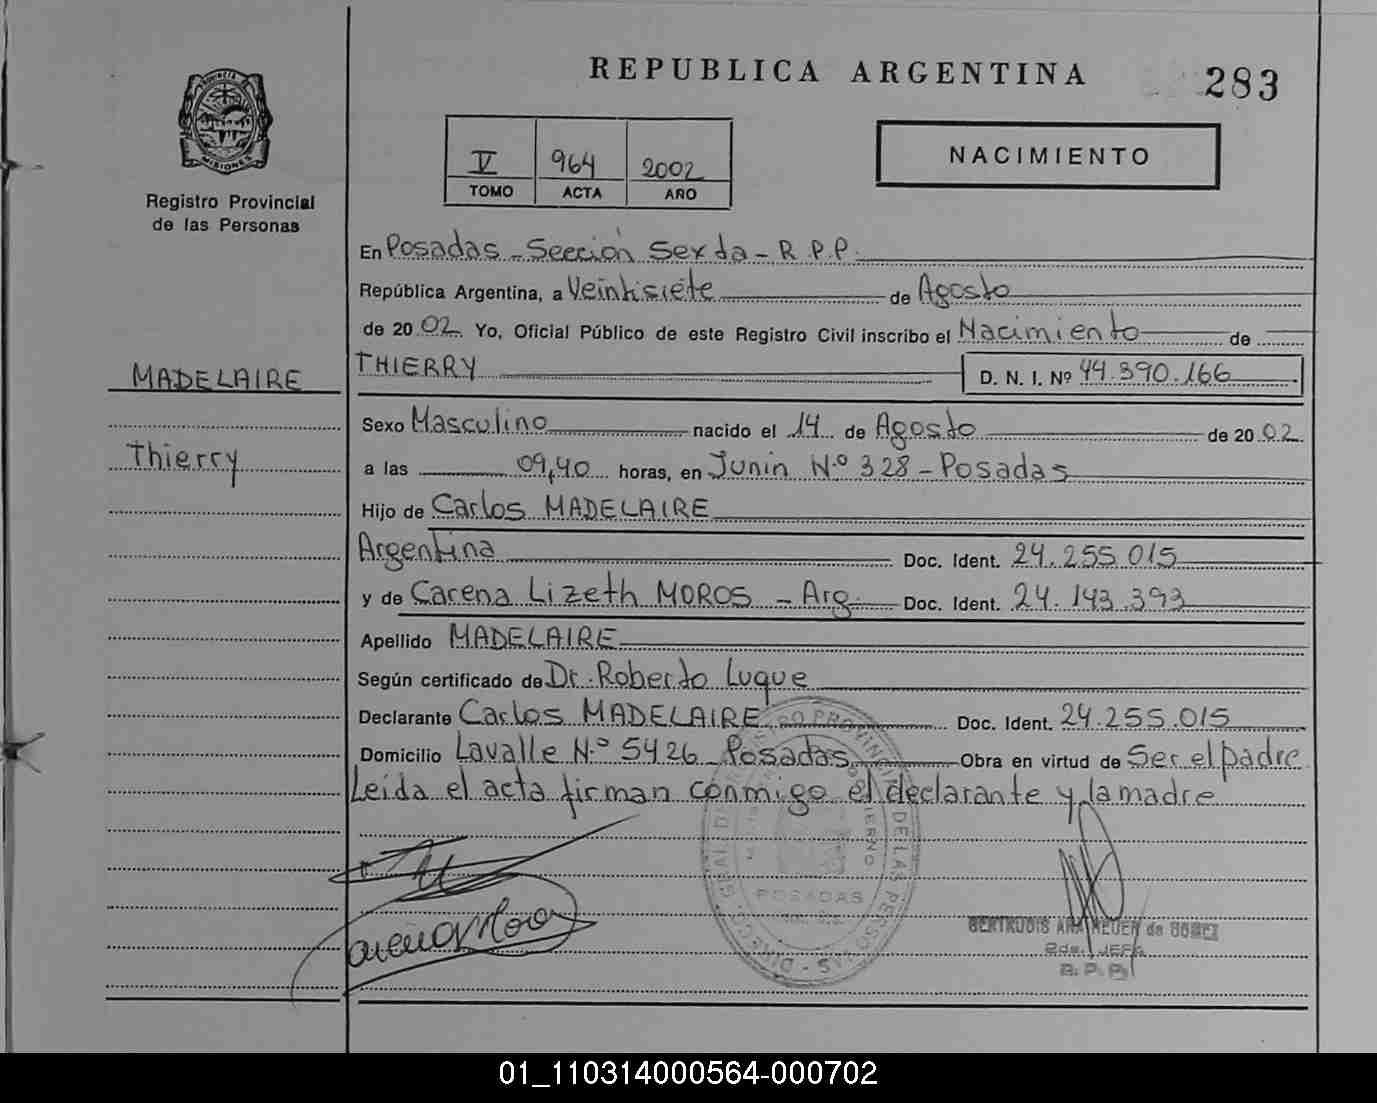 REPUBLICA ARGENTINA
283
PROVINCIA DE
MISIONES
Registro Provincial
de las Personas
V 964 2002
TOMO ACTA AÑO
NACIMIENTO
En Posadas - Sección Sexta - R.P.P.
República Argentina, a Veintisiete de Agosto
de 2002 Yo, Oficial Público de este Registro Civil inscribo el Nacimiento de
THIERRY D. N. I. Nº 44.390.166
MADELAIRE
Sexo Masculino nacido el 14 de Agosto de 2002
Thierry
a las 09,40 horas, en Junin N.º 328 - Posadas
Hijo de Carlos MADELAIRE
Argentina Doc. Ident. 24.255.015
y de Carena Lizeth MOROS - Arg. Doc. Ident. 24.143.393
Apellido MADELAIRE
Según certificado de Dr. Roberto Luque
Declarante Carlos MADELAIRE Doc. Ident. 24.255.015
Domicilio Lavalle N.º 5426 Posadas Obra en virtud de Ser el padre
Leida el acta firman conmigo el declarante y la madre
POSADAS
GERTRUDIS
2da. JEFA
R.P.P.
01_110314000564-000702